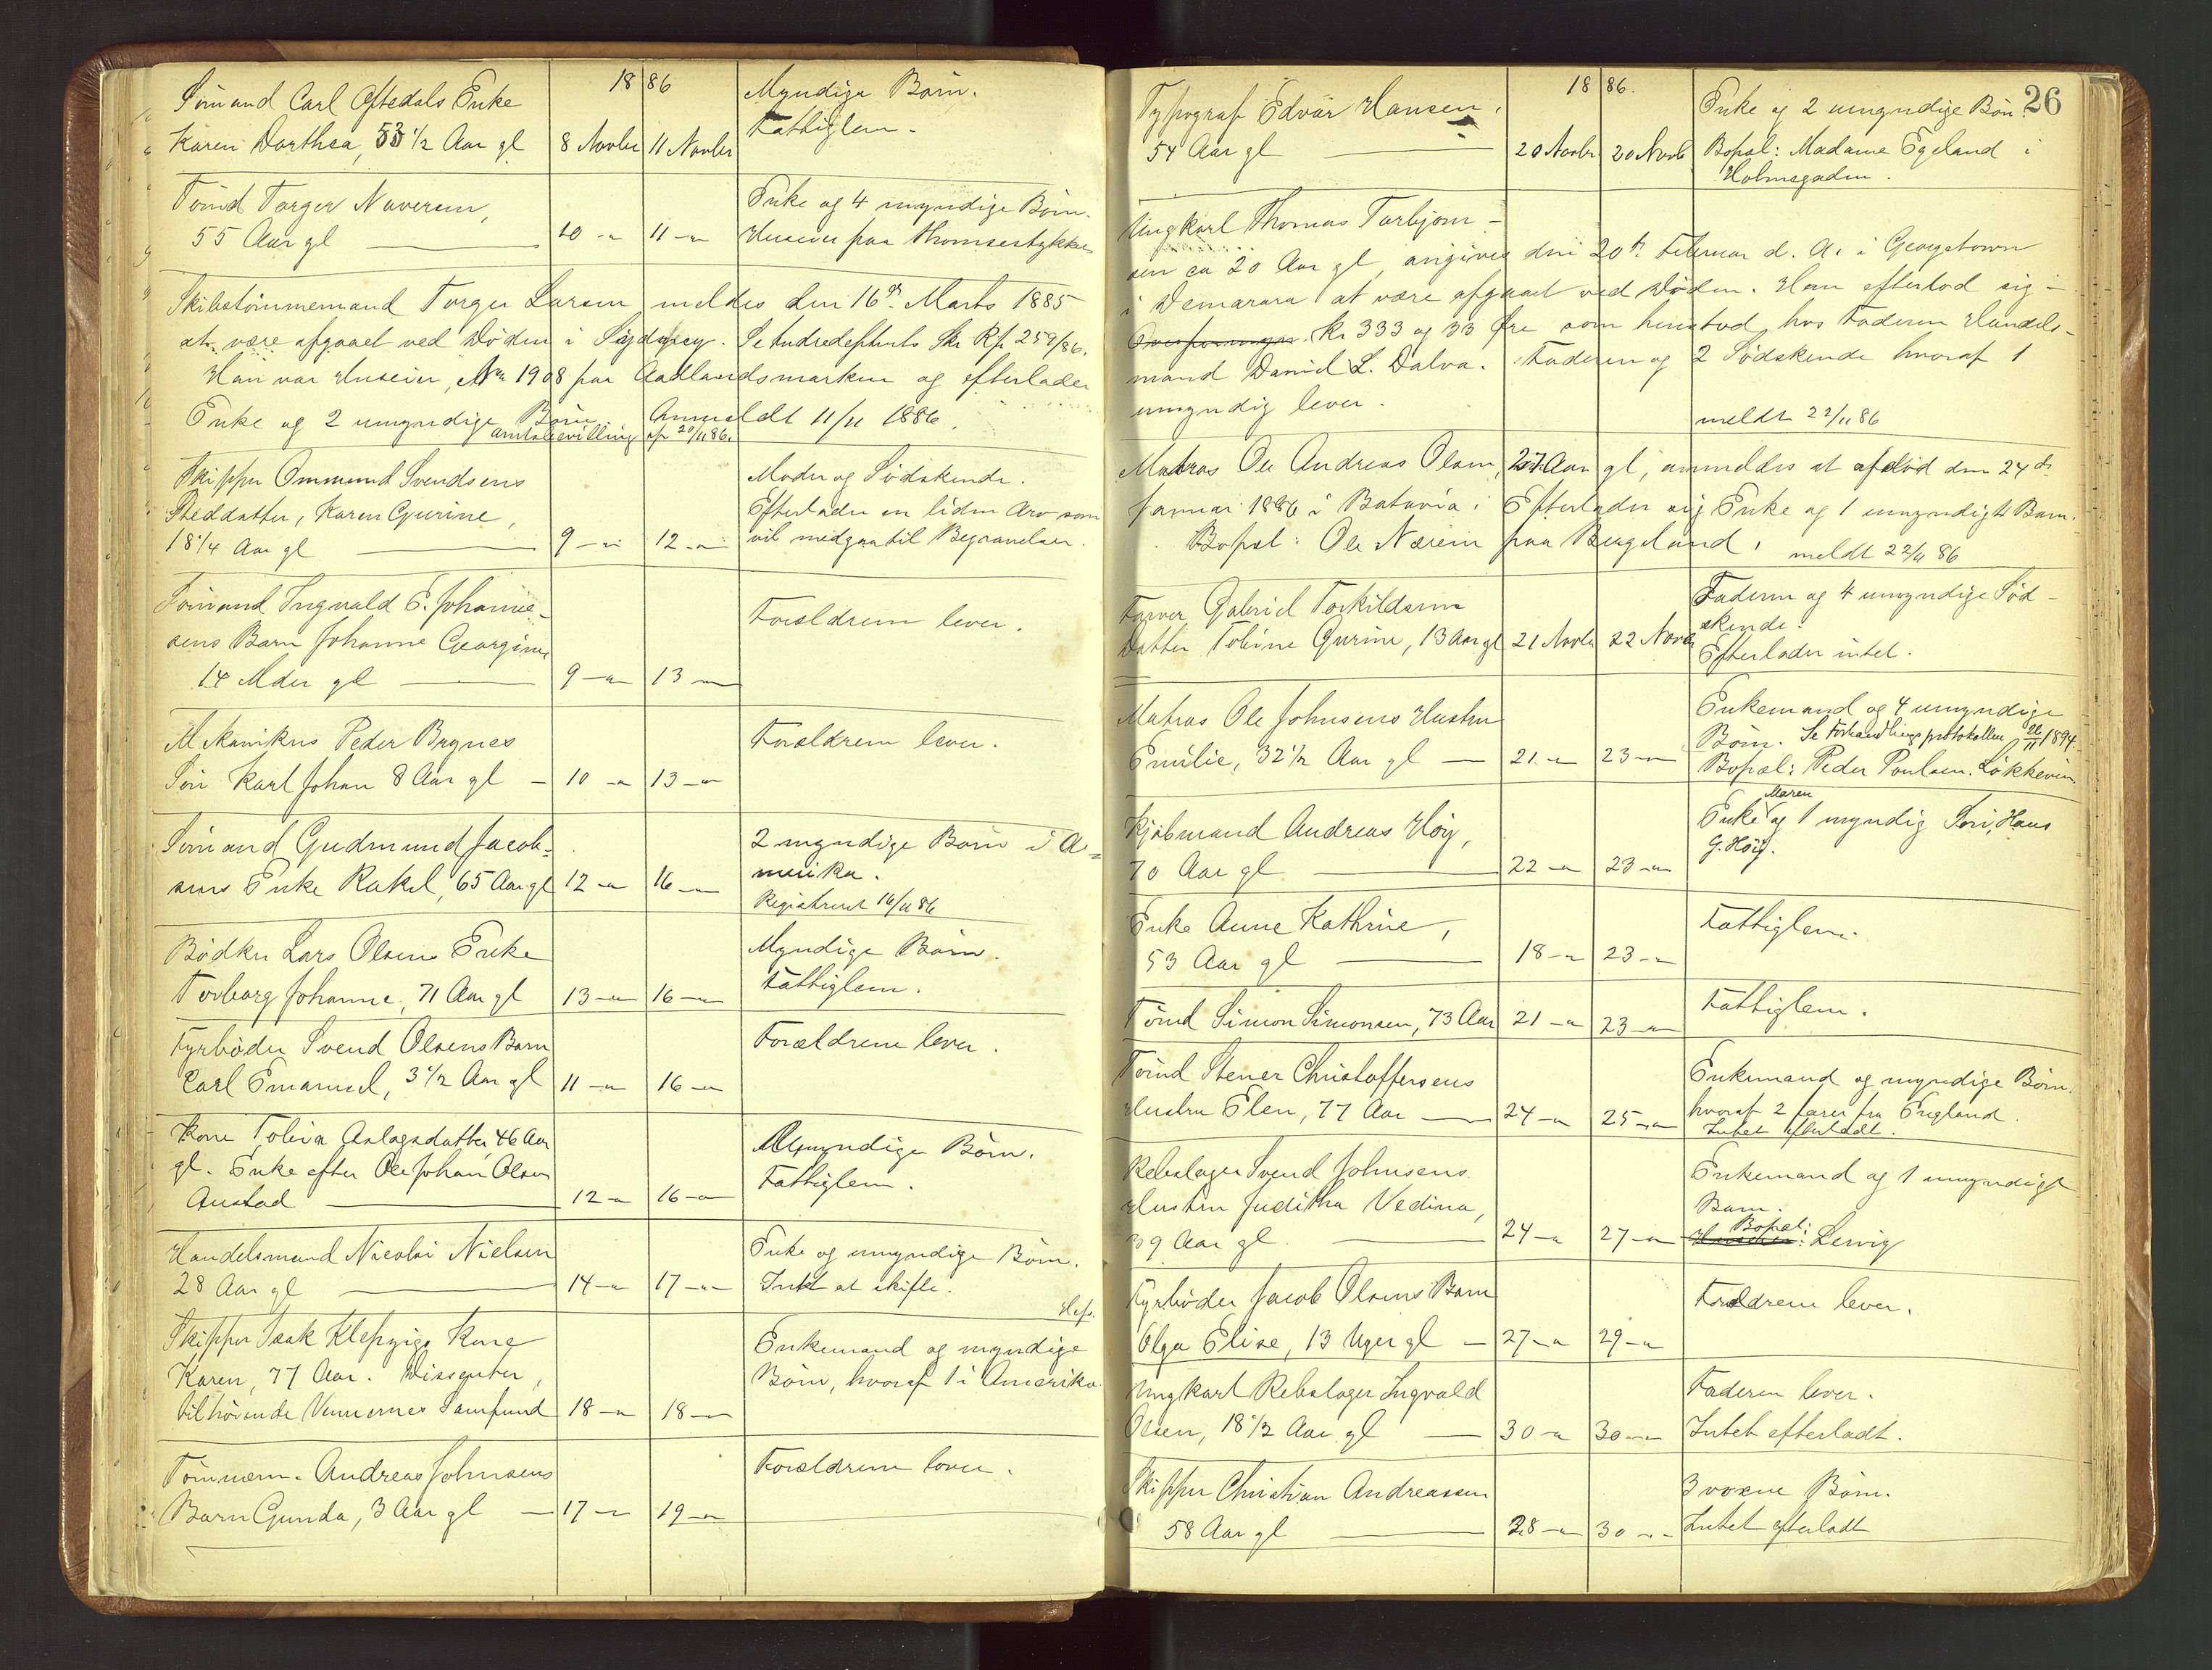 18 86
Sömand Carl Oftedals Enke
Karen Dorthea, 53 1/2 Aar gl
8 Novbr 11 Novbr
Myndige Börn.
Fattiglem.
Tömd Torger Naversen,
55 Aar gl
10 -"- 11 -"-
Enke og 4 myndige Börn.
Huseier paa Thomsestykket
Skibstömmermand Torger Larsen meldes den 16de Marts 1885
at være afgaaet ved Döden i Sydney. Se Andredepherts Skr Rf. 259/86.
Han var Huseier, No 1908 paa Aadlandsmarken og efterlader
Enke og 2 umyndige Börn. Anmeldt 11/11 1886.
amtsbevilling af 20/11 86.
Skipper Ommund Svendsens
Steddatter, Karen Gurine,
18 1/4 Aar gl
9 -"- 12 -"-
Moder og Södskende.
Efterlader en liden Arv som
vil medgaa til Begravelsen.
Sömand Ingvald E. Johanne-
sens Barn Johanne Georgine
14 Mdr gl
9 -"- 13 -"-
Forældrene lever.
Mekanikus Peder Brynes
Sön Karl Johan 8 Aar gl
10 -"- 13 -"-
Forældrene lever.
Sömand Gudmund Jacob-
sens Enke Rakel, 65 Aar gl
12 -"- 16 -"-
2 myndige Börn i A-
merika.
Registreret 16/11 86
Bödker Lars Olsens Enke
Torborg Johanne, 71 Aar gl
13 -"- 16 -"-
Myndige Börn.
Fattiglem.
Fyrböder Svend Olsens Barn
Carl Emanuel, 3 1/2 Aar gl
11 -"- 16 -"-
Forældrene lever.
Kone Tolina Aslagsdatter 46 Aar
gl. Enke efter Ole Johan Olsen
Austad
12 -"- 16 -"-
Umyndige Börn.
Fattiglem.
Handelsmand Nicolai Nielsen
28 Aar gl
14 -"- 17 -"-
Enke og umyndige Börn.
Intet at skifte.
Skipper Isak Klepzigs Kone
Karen, 77 Aar. Dissenter,
tilhörende Vennernes Samfund
18 -"- 18 -"-
Enkemand og myndige
Börn, hvoraf 1 i Amerika
Tömmerm. Andreas Johnsens
Barn Gunda, 3 Aar gl
17 -"- 19 -"-
Forældrene lever.
26
18 86.
Typograf Edvar Hansen,
54 Aar gl
20 Novbr 20 Novb
Enke og 2 umyndige Börn
Bopæl: Madame Egeland i
Holmegaden.
Ungkarl Thomas Torbjörn-
sen ca 20 Aar gl, angives den 20de Februar d. A. i Georgetown
i Demarara at være afgaaet ved Döden. Han efterlod sig
kr 333 og 33 Öre som henstod hos Faderen Handels-
mand Daniel L. Dalva. Faderen og 2 Södskende hvoraf 1
umyndig lever.
meldt 22/11 86
Matros Ole Andreas Olsen, 27 Aar gl, anmeldes at afdöd den 24de
Januar 1886 i Batavia. Efterlader sig Enke og 1 umyndigt Barn.
Bopæl: Ole Næsein paa Bergeland. meldt 22/11 86
Farver Gabriel Torkildsens
Datter Toline Gurine, 13 Aar gl
21 Novbr 22 Novbr
Faderen og 4 umyndige Söd-
skende.
Efterlader intet.
Matros Ole Johnsens Hustru
Emilie, 32 1/2 Aar gl
21 -"- 23 -"-
Enkemand og 4 umyndige
Börn. Se Forhandlingsprotokollen 26/11 1894.
Bopæl: Peder Poulsen. Lökkeveien
Kjöbmand Andreas Höy,
70 Aar gl
22 -"- 23 -"-
Maren
Enke og 1 myndig Sön, Hans
G. Höy.
Enke Anne Kathrine,
53 Aar gl
18 -"- 23 -"-
Fattiglem.
Tömd Simon Simonsen, 73 Aar
21 -"- 23 -"-
Fattiglem.
Tömd Stener Christoffersens
Hustru Elen, 77 Aar
24 -"- 25 -"-
Enkemand og myndige Börn.
hvoraf 2 farer fra England.
Intet efterladt.
Rebslager Svend Johnsens
Hustru Juditha Vedina,
39 Aar gl.
24 -"- 27 -"-
Enkemand og 1 umyndigt
Barn.
Bopæl:
Lervig
Fyrböder Jacob Olsens Barn
Olga Elise, 13 Uger gl
27 -"- 29 -"-
Forældrene lever.
Ungkarl Rebslager Ingvald
Olsen, 18 1/2 Aar gl
30 -"- 30 -"-
Faderen lever.
Intet efterladt.
Skipper Christian Andreassen
58 Aar gl
28 -"- 30 -"-
3 voxne Börn.
Intet efterladt